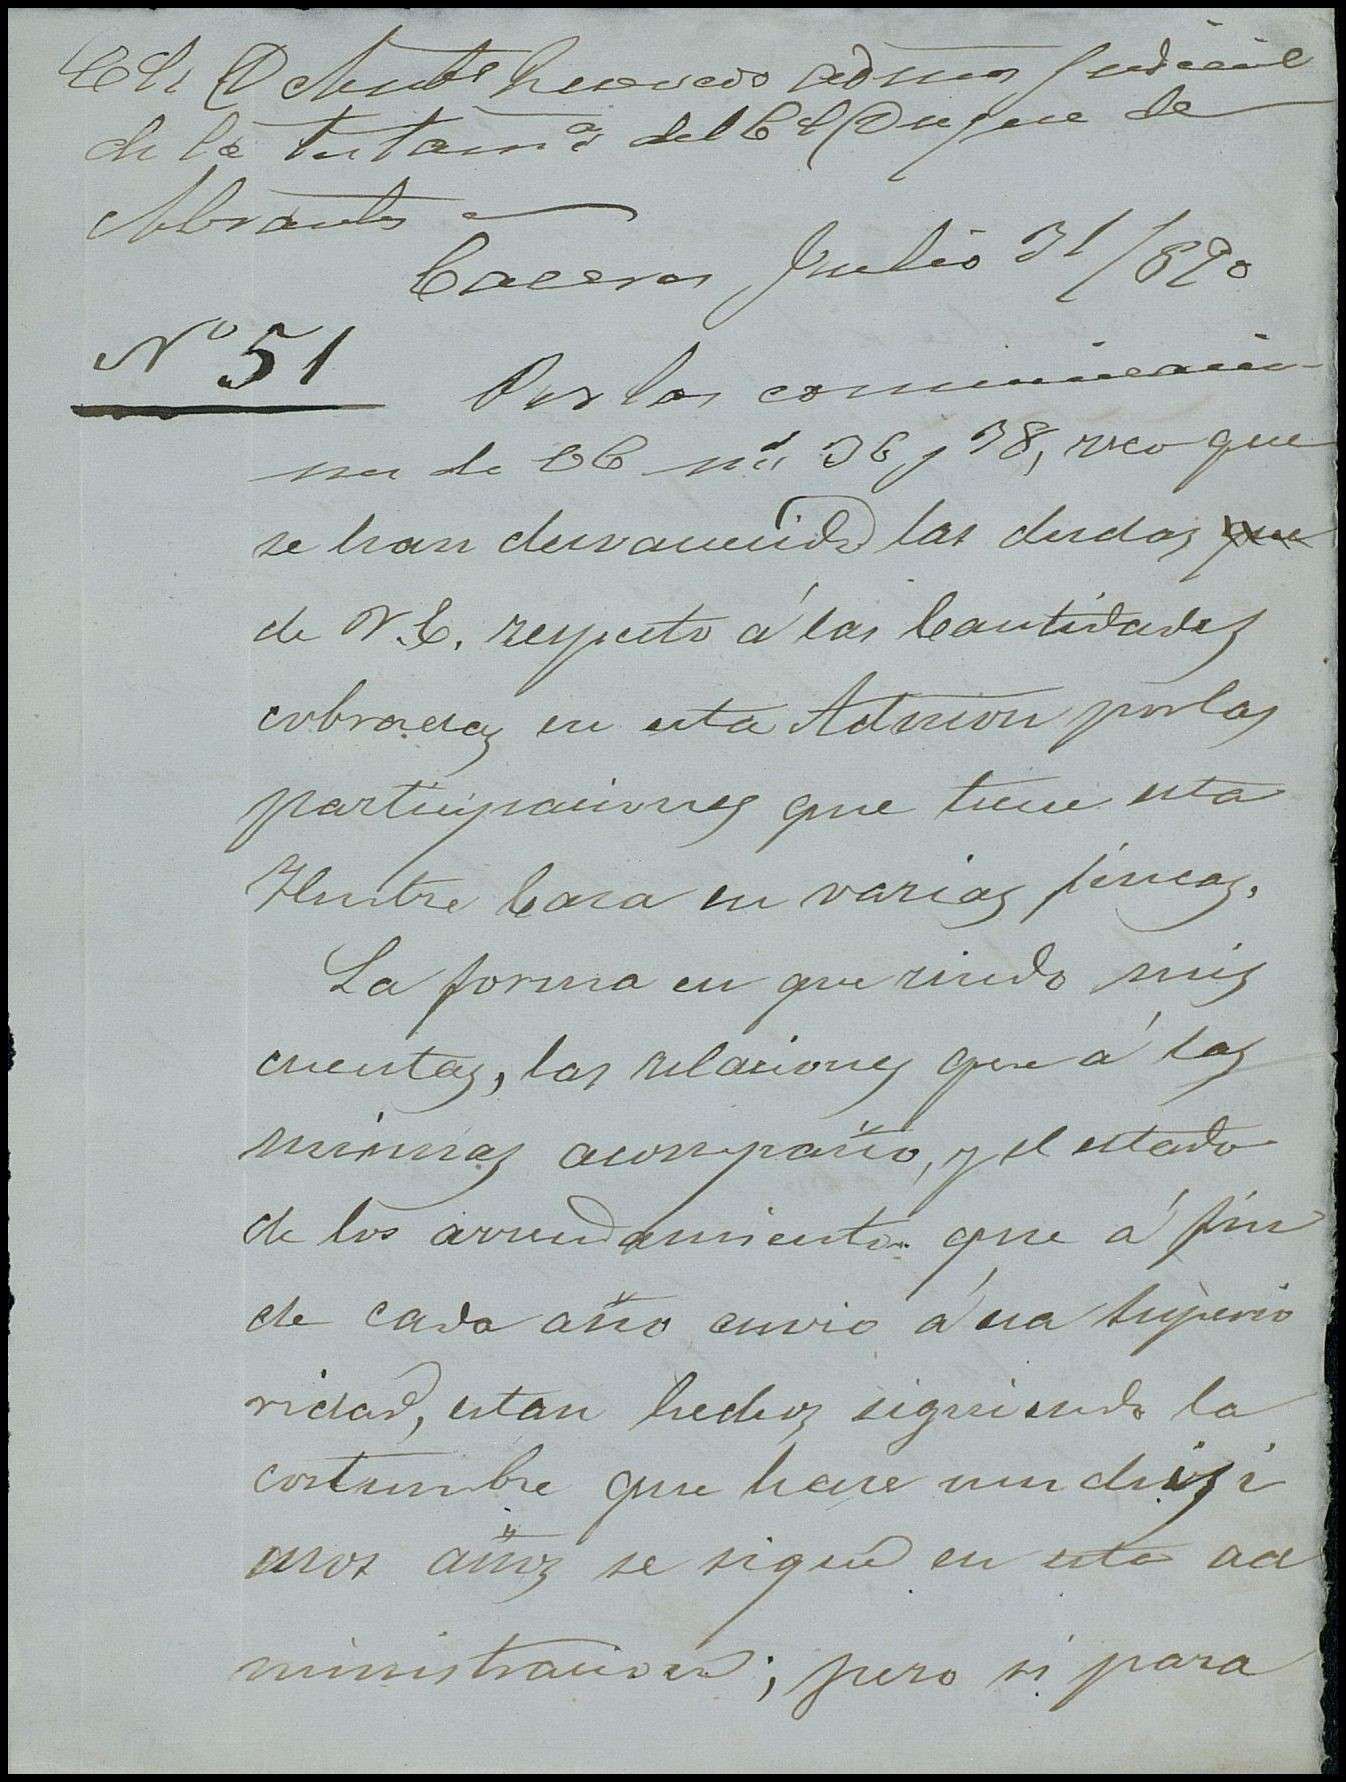 de la testam.ª del E. S. Duque de
Abrantes
Caceres Julio 31/890
Nº 51
Por las comunicacio-
nes de VE nº 36 y 38, veo que
se han desvanecido las dudas que
de V.E. respecto á las Cantidades
cobradas en esta Admon por las
participaciones que tiene esta
Ilustre Casa en varias fincas.
La forma en que rindo mis
cuentas, las relaciones que á las
mismas acompaño, y el estado
de los arrendamientos que á fin
de cada año envio á esa Superio
ridad, estan hechos siguiendo la
costumbre que hace muchisi
mos años se sigue en esta ad
ministracion; pero si para